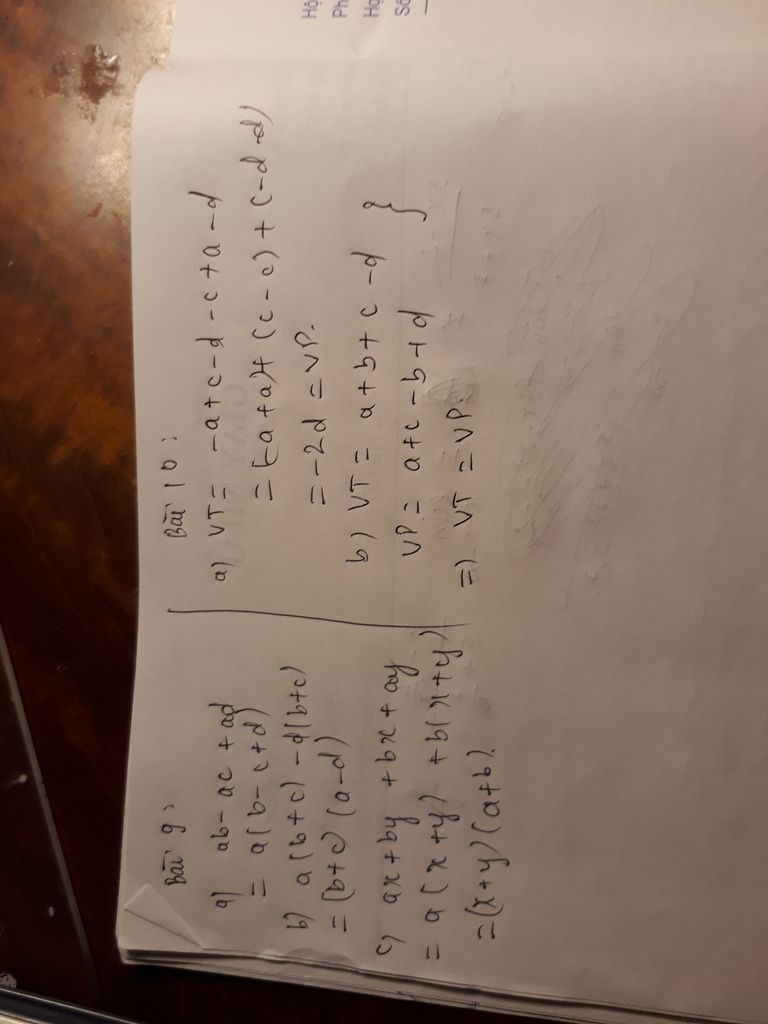 Bài 9:
a) ab - ac + ad
= a(b - c + d)
b) a(b+c) - d(b+c)
= (b+c)(a-d)
c) ax + by + bx + ay
= a(x+y) + b(x+y)
= (x+y)(a+b).
Bài 10:
a) VT = -a+c-d-c+a-d
= (-a+a)+(c-c)+c-d-d)
= -2d = VP.
b) VT = a+b+c-d }
VP = a+c-b+d
=) VT = VP.
Hộ
Ph
Họ
Số